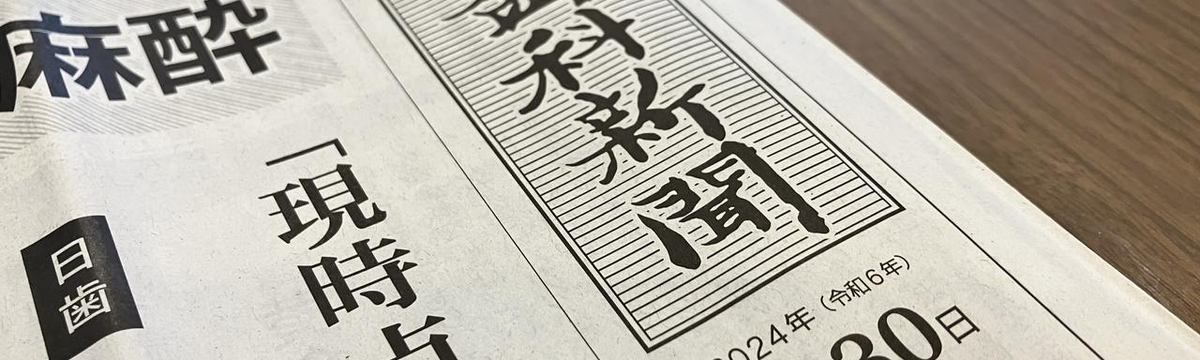 麻酔
科新聞
2024年（令和6年）
30日
「現時点
日歯